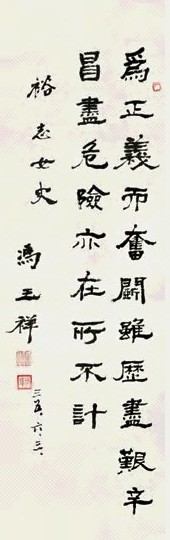 為正義而奮鬪雖歷盡艱辛
昌盡危險亦在所不計
裕志女史
馮玉祥
三五、六、三、